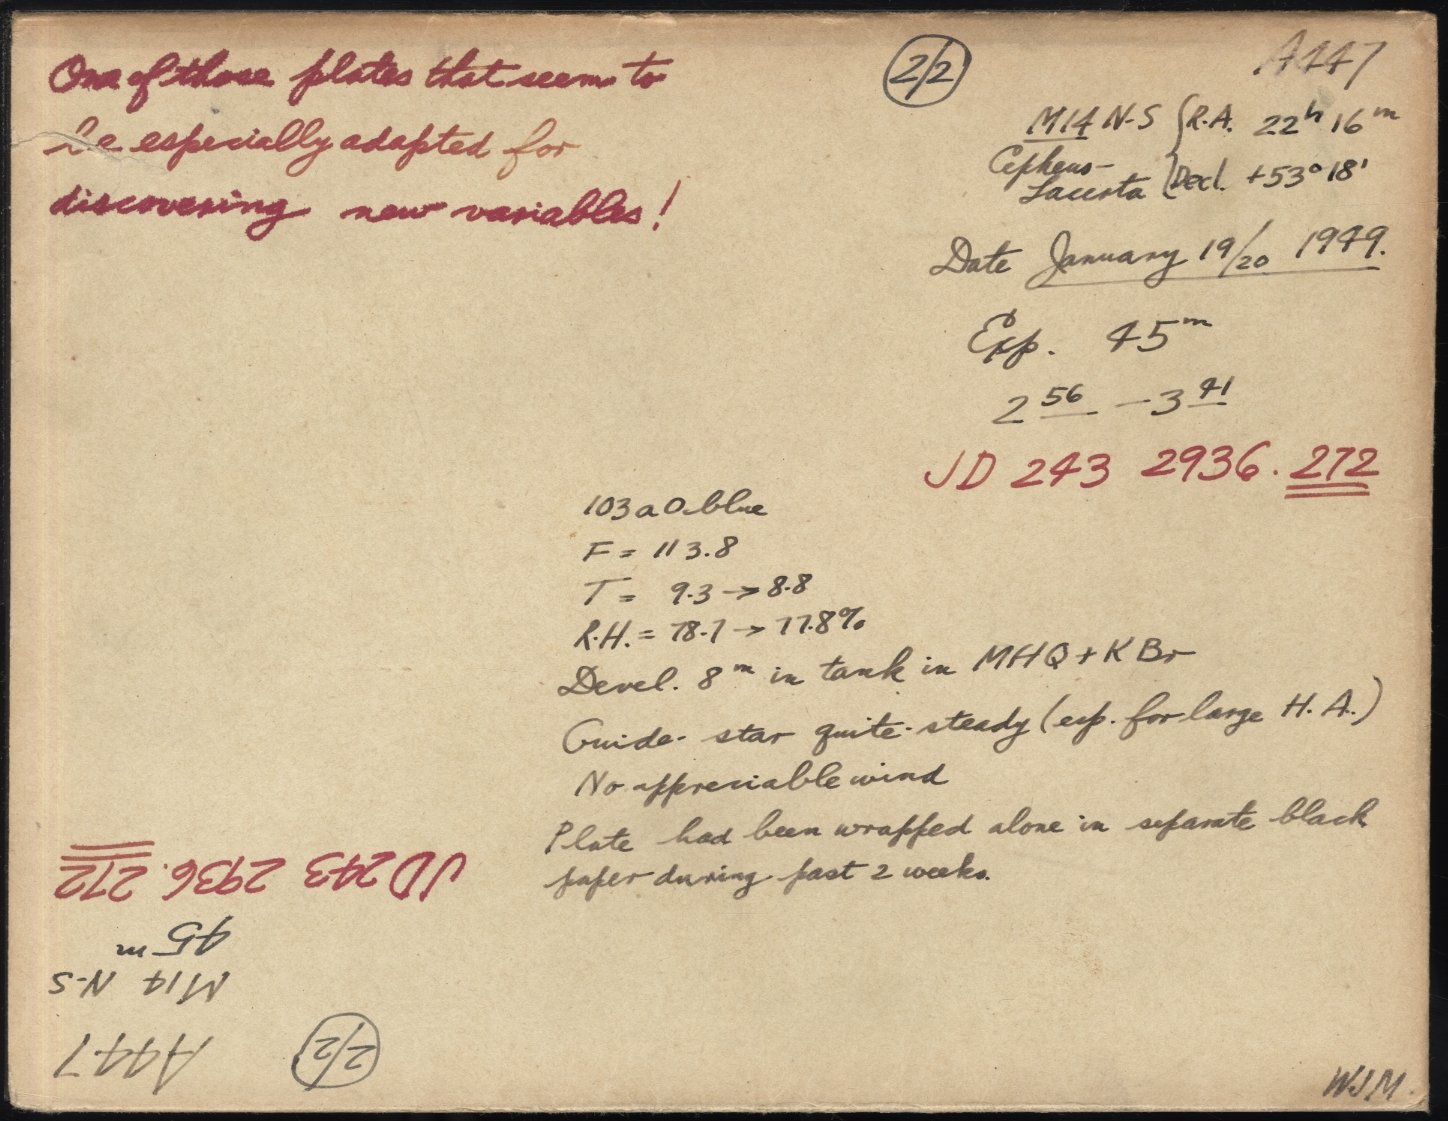 One of those plates that seem to
be especially adapted for
discovering new variables!
2/2
A447
M14 N-S { R.A. 22h 16m
Cepheus-
Lacerta { Decl. +53° 18'
Date January 19/20 1949.
Exp. 45m
2 56 — 3 41
JD 243 2936.272
103aO-blue
F = 113.8
T = 9.3 → 8.8
R.H. = 78.7 → 77.8%
Devel. 8m in tank in MHQ + KBr
Guide-star quite steady (esp. for large H.A.)
No appreciable wind
Plate had been wrapped alone in separate black
paper during past 2 weeks.
WJM.
2/2
A447
M14 N-S
45m
JD 243 2936.272